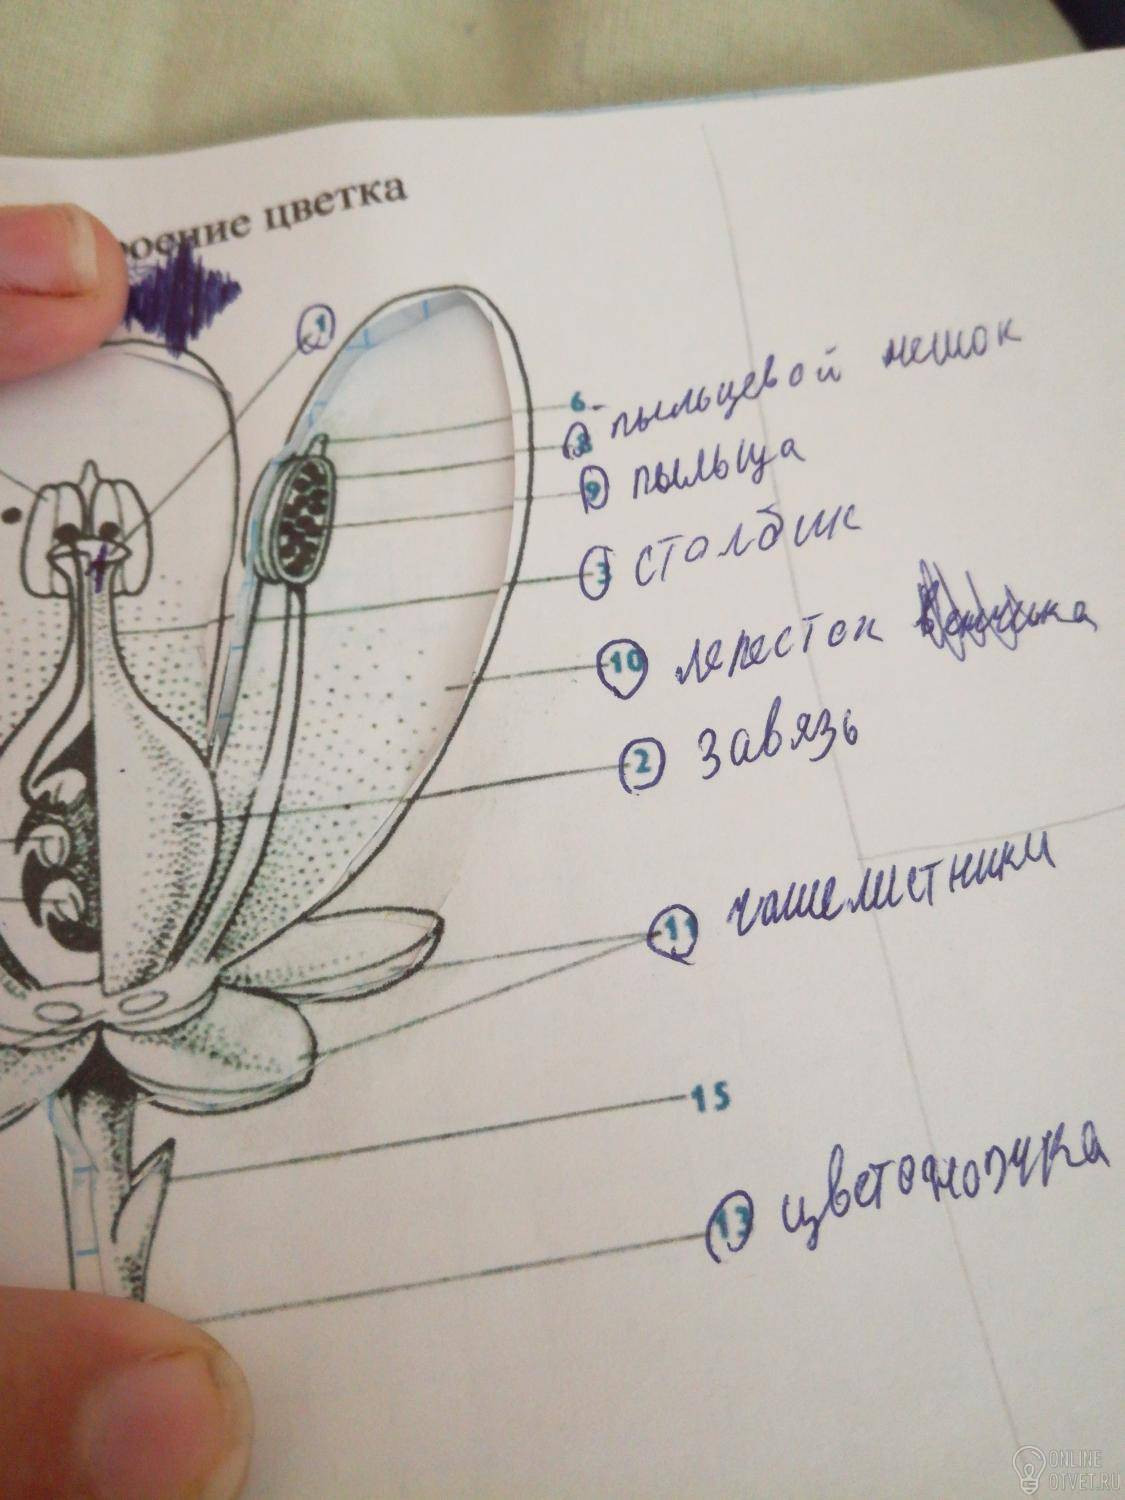 роение цветка
1
6 - пыльцевой мешок
8
9 пыльца
3 столбик
10 лепесток
2 завязь
11 чашелистники
15
13 цветоножка
ONLINE
OTVET.RU